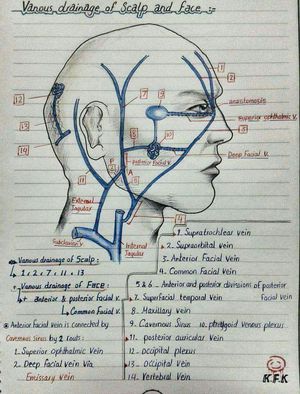 Vanous drainage of Scalp and Face :-
1
2
7
9
12
anastomosis
Superior ophthalmic V.
3
13
10
8
14
5
Posterior Facial V.
6
P
A
Deep Facial V.
11
External
Jugular
4
Subclavian V.
Internal
Jugular
1. Supratrochlear vein
2. Supraorbital vein
3. Anterior Facial Vein
4. Common Facial Vein
Vanous drainage of Scalp:
1, 2, 7, 11, 13
Vanous drainage of FACE:
anterior & posterior Facial V.
Common Facial V.
Anterior Facial Vein is connected by
Cavernous Sinus by 2 routs:
1. Superior ophthalmic Vein
2. Deep Facial Vein Via
Emissary vein
5 & 6 - Anterior and posterior divisions of posterior
Facial Vein
7- Superficial temporal Vein
8- Maxillary Vein
9- Cavernous Sinus 10. pterygoid venous plexus
11- posterior auricular Vein
12- occipital plexus
13- Occipital vein
14- Vertebral Vein
K.F.K